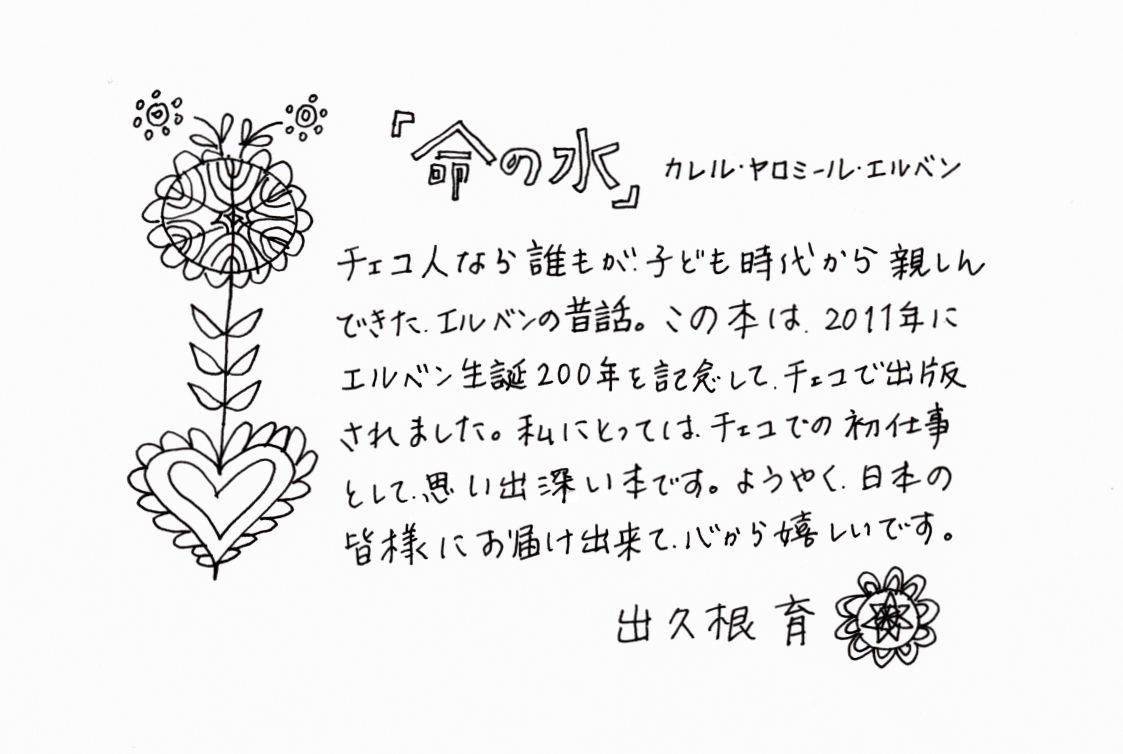 『命の水』 カレル・ヤロミール・エルベン
チェコ人なら誰もが、子ども時代から親しん
できた、エルベンの昔話。この本は、2011年に
エルベン生誕200年を記念して、チェコで出版
されました。私にとっては、チェコでの初仕事
として、思い出深い本です。ようやく、日本の
皆様にお届け出来て、心から嬉しいです。
出久根 育